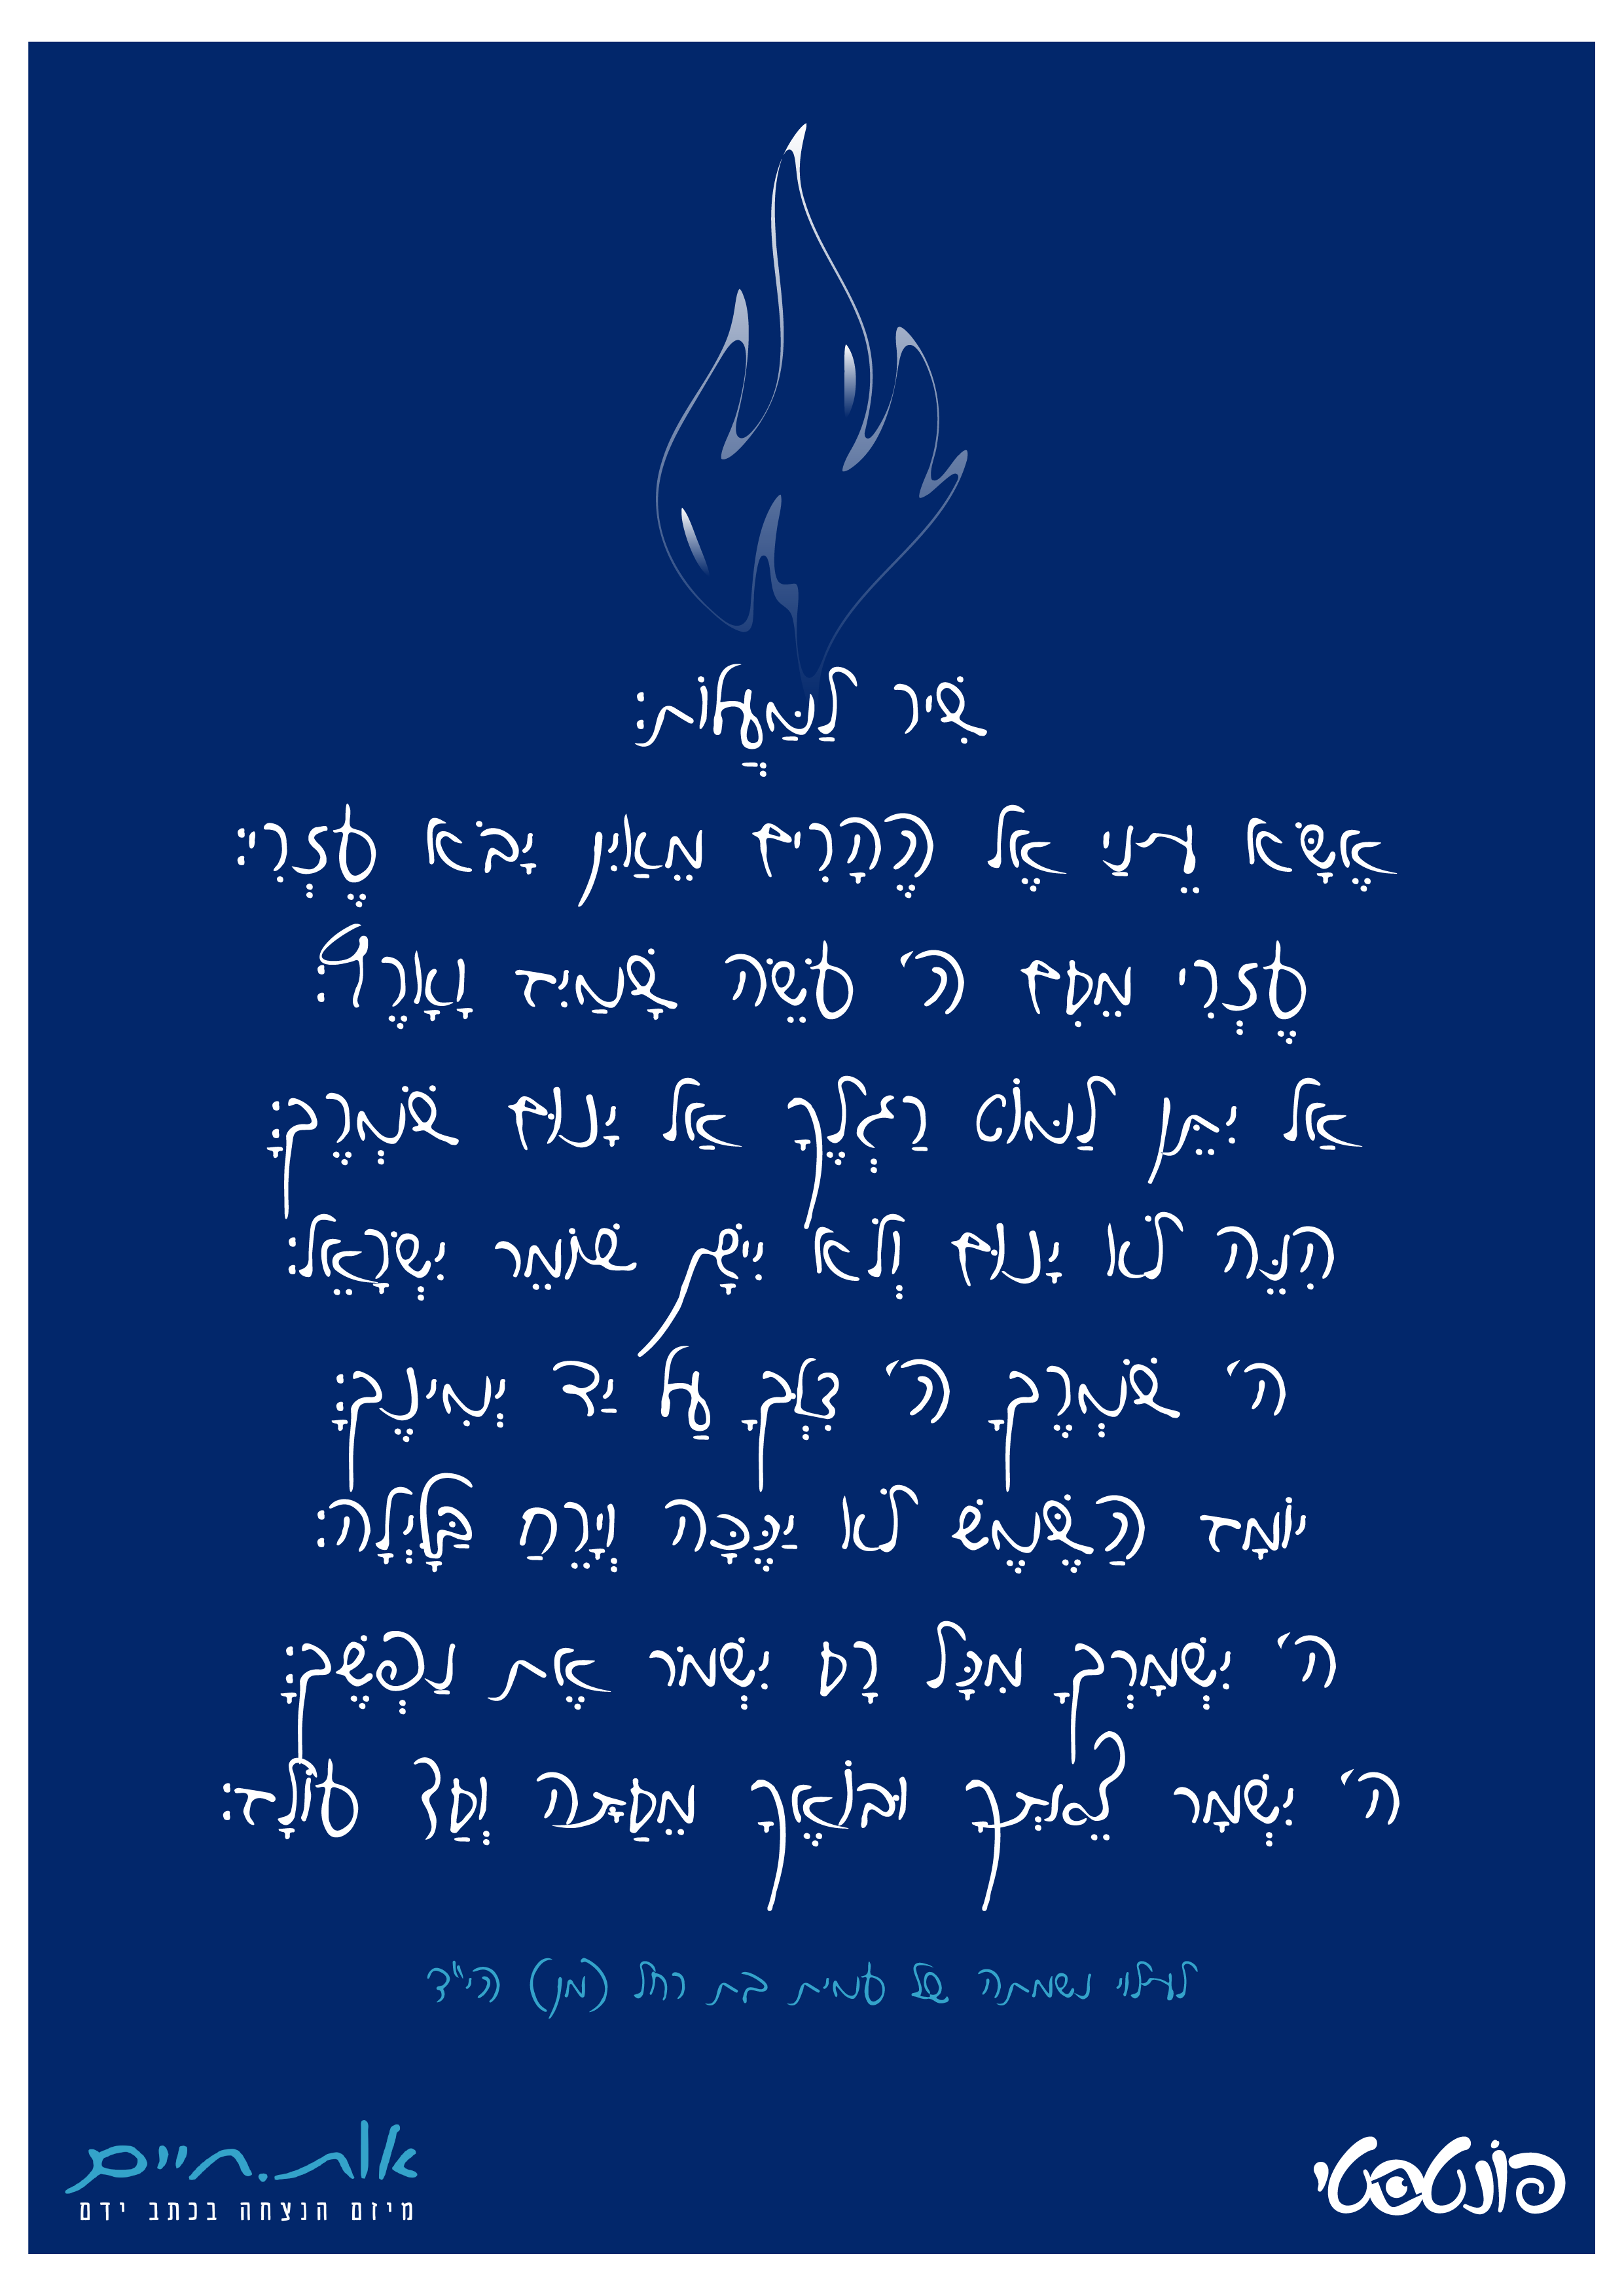 שִׁיר לַמַּעֲלוֹת:
אֶשָּׂא עֵינַי אֶל הֶהָרִים מֵאַיִן יָבֹא עֶזְרִי:
עֶזְרִי מֵעִם ה' עֹשֵׂה שָׁמַיִם וָאָרֶץ:
אַל יִתֵּן לַמּוֹט רַגְלֶךָ אַל יָנוּם שֹׁמְרֶךָ:
הִנֵּה לֹא יָנוּם וְלֹא יִישָׁן שׁוֹמֵר יִשְׂרָאֵל:
ה' שֹׁמְרֶךָ ה' צִלְּךָ עַל יַד יְמִינֶךָ:
יוֹמָם הַשֶּׁמֶשׁ לֹא יַכֶּכָּה וְיָרֵחַ בַּלָּיְלָה:
ה' יִשְׁמָרְךָ מִכָּל רָע יִשְׁמֹר אֶת נַפְשֶׁךָ:
ה' יִשְׁמָר צֵאתְךָ וּבוֹאֶךָ מֵעַתָּה וְעַד עוֹלָם:
לעילוי נשמתה של עמית בת רחל (מן) הי"ד
אות.חיים
מיזם הנצחה בכתב ידם
פונטביט